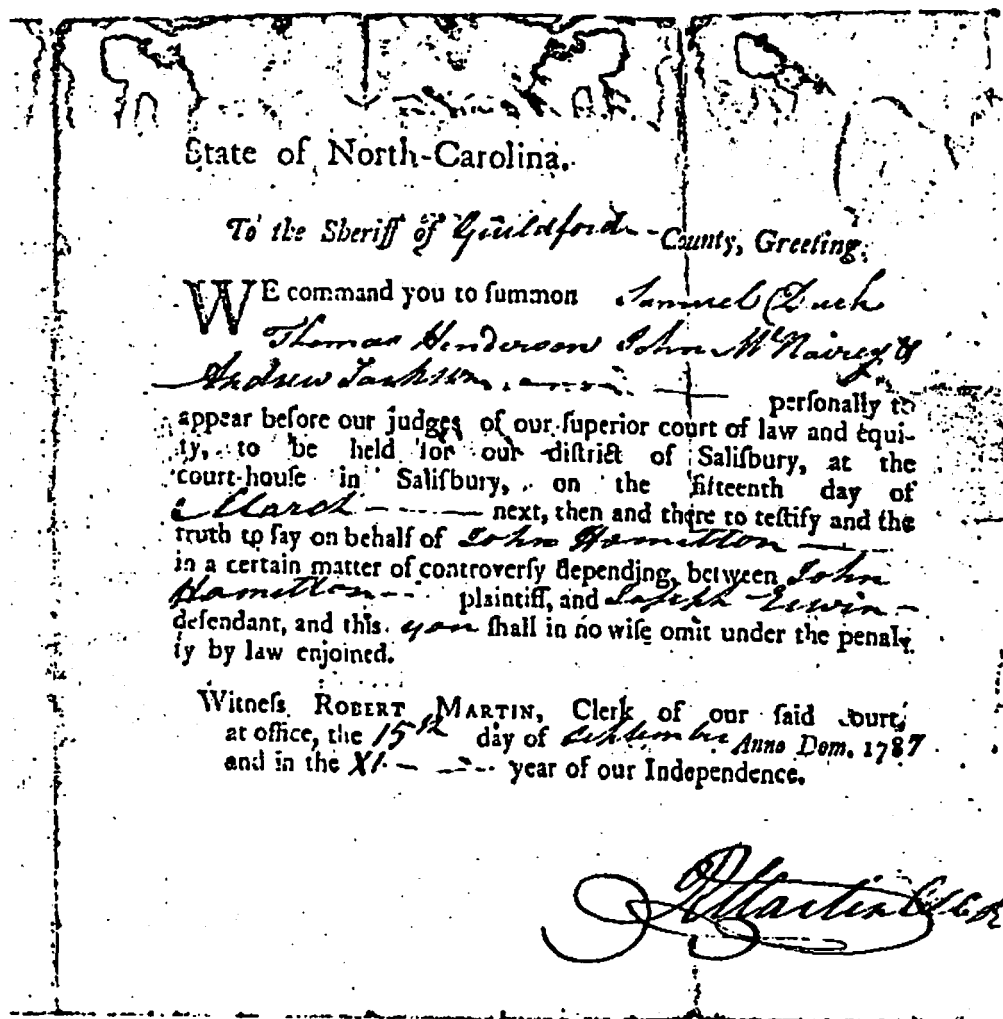 State of North-Carolina.
To the Sheriff of Guildford County, Greeting.
WE command you to ſummon Samuel
Thomas Henderson John McNairey &
Andrew Jackson
perſonally to
appear before our judges of our ſuperior court of law and equi-
ty, to be held for our diſtrict of Saliſbury, at the
court-houſe in Saliſbury, on the fifteenth day of
March next, then and there to teſtify and the
truth to ſay on behalf of John Hamilton
in a certain matter of controverſy depending, between John
Hamilton plaintiff, and Joseph Erwin
defendant, and this you ſhall in no wiſe omit under the penal-
ty by law enjoined.
Witneſs ROBERT MARTIN, Clerk of our ſaid court,
at office, the 15th day of September Anno Dom. 1787
and in the XI year of our Independence.
R Martin